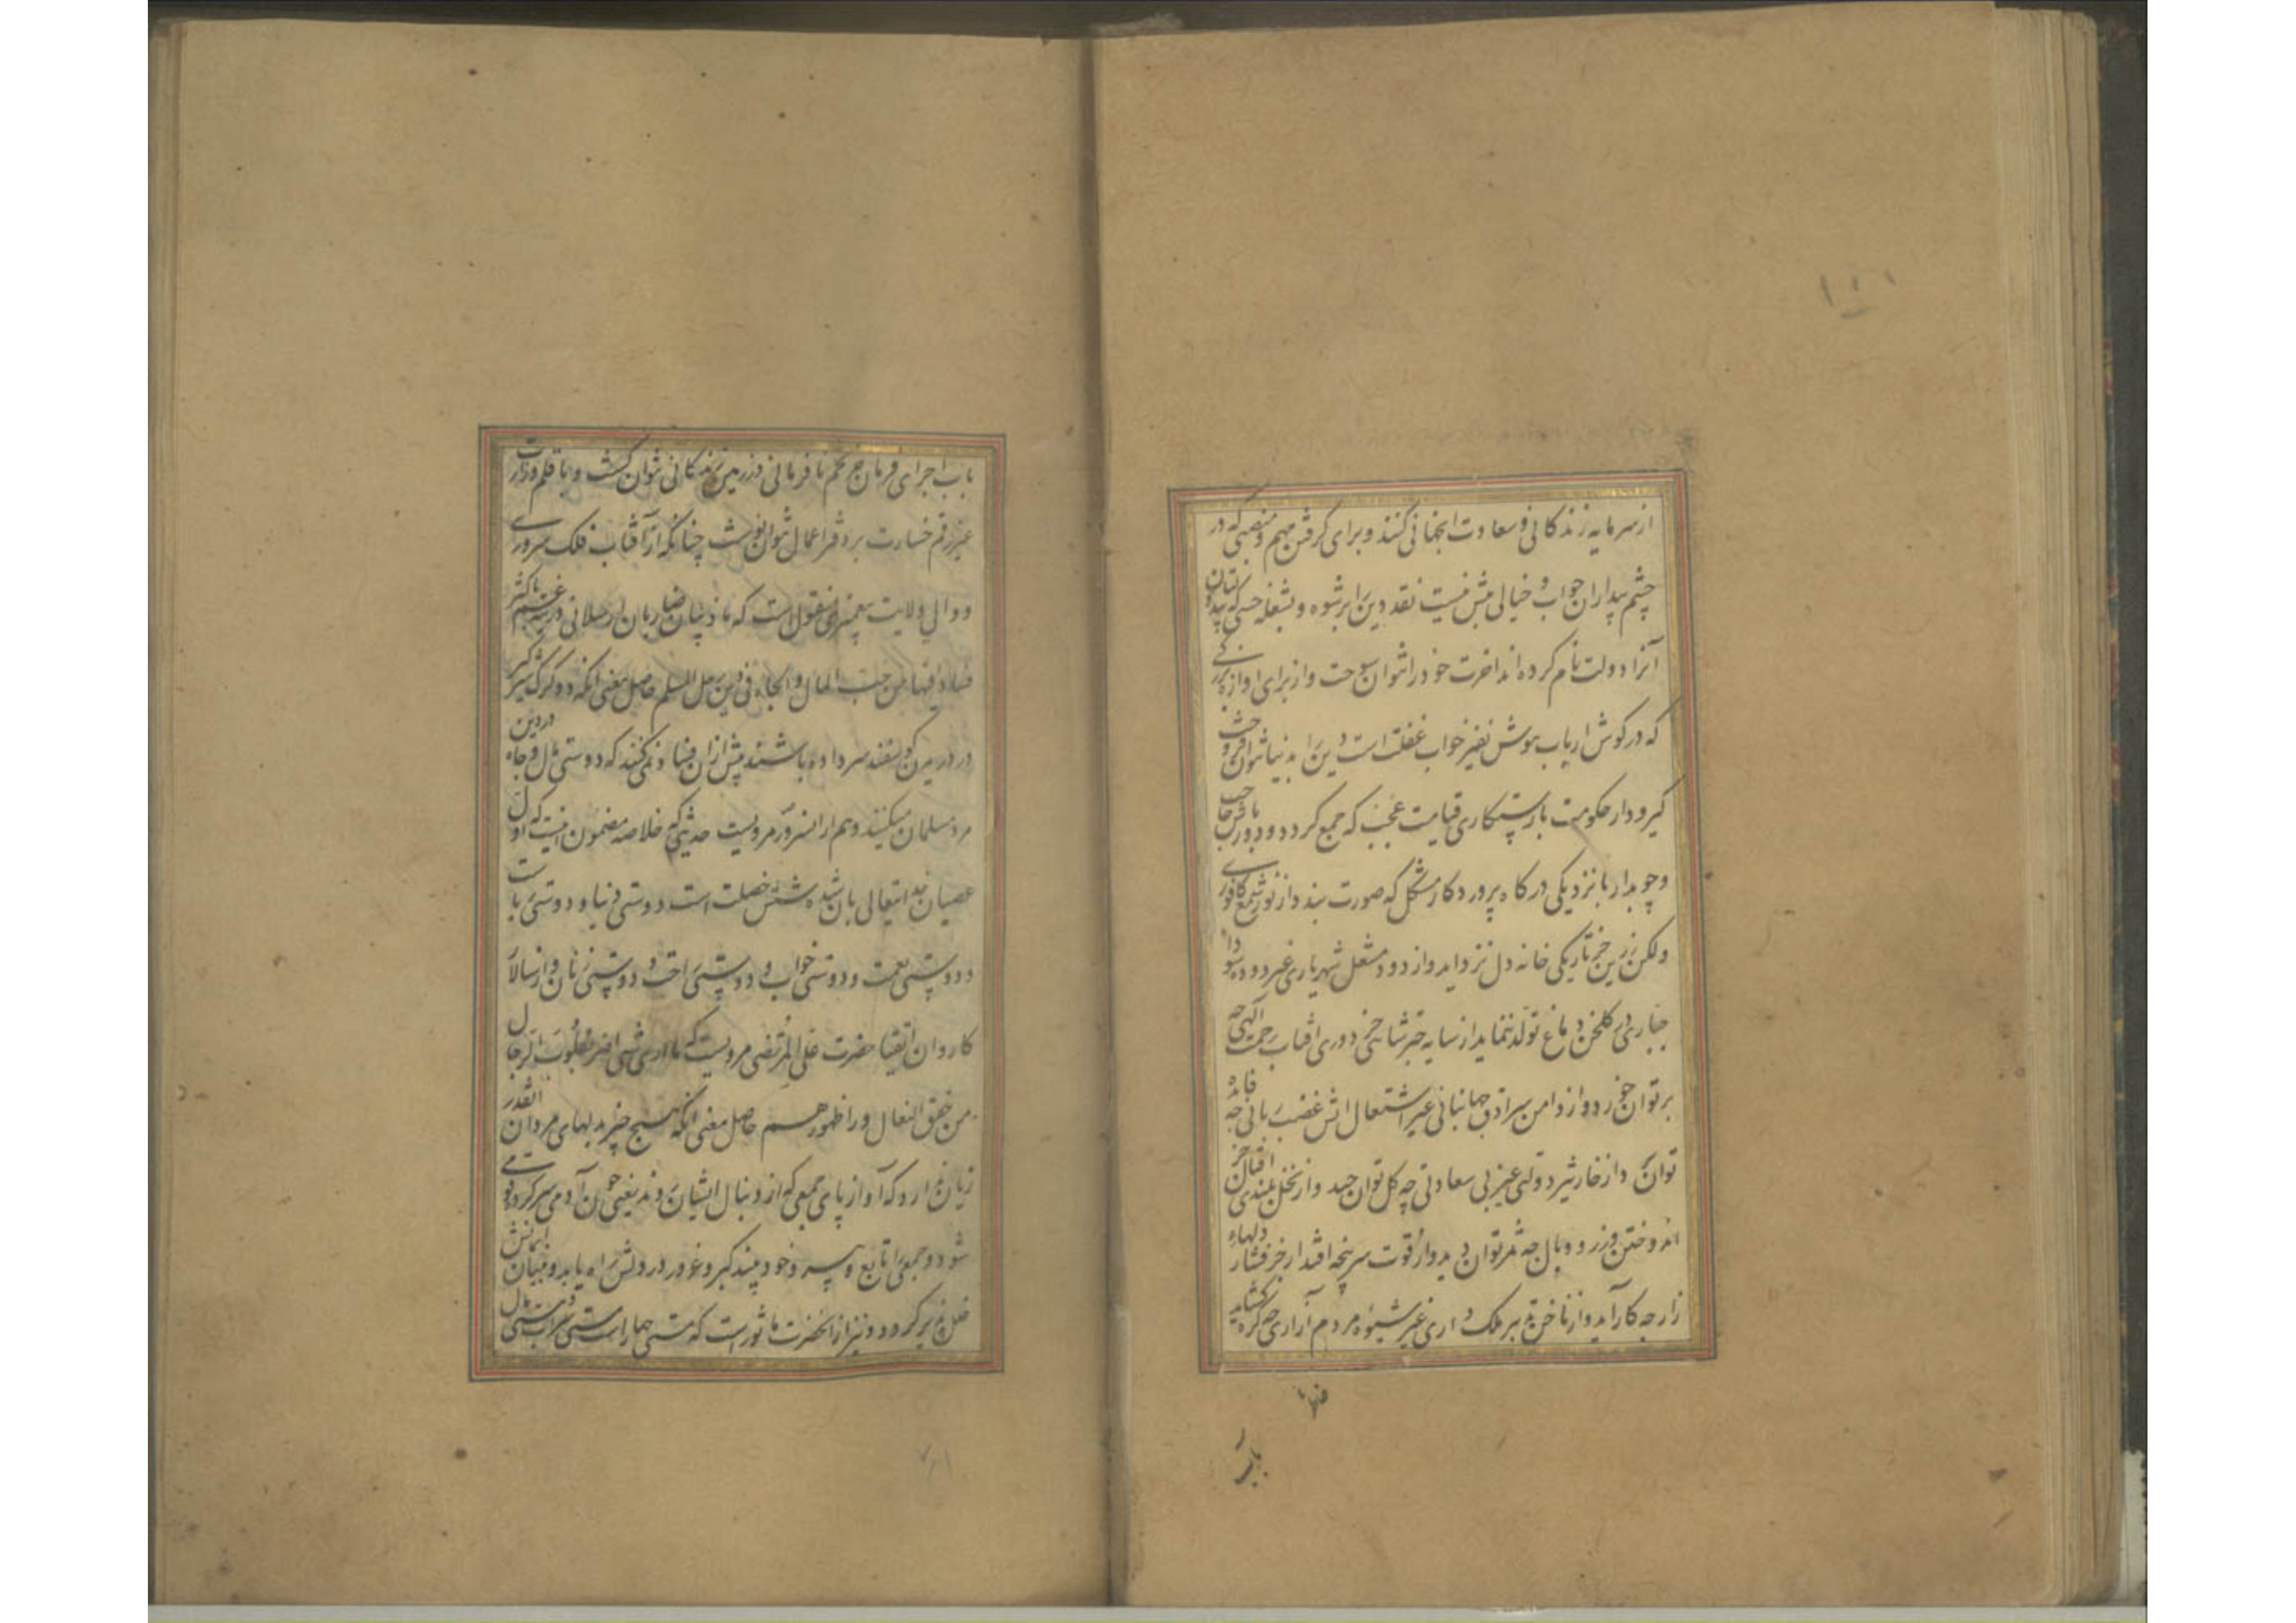 از سرمایه زندگانی و سعادت آنجهانی کنند و برای گرفتن مهم و منصبی که در
چشم بیداران خواب و خیالی بیش نیست نقد دین را بر شوه و بشغله
آنرا دولت نام کرده اند اخرت خود را توان سوخت و از برای اوازه
که در گوش ارباب هوش نفیر خواب غفلت است دین را بدنیا توان فروخت
گیر و دار حکومت با رستگاری قیامت عجب که جمع گردد و دورباش حاجب
و چوبدار با نزدیکی درگاه پروردگار مشکل که صورت بندد از نور شمع کافوری
و لگن زرین جز تاریکی خانه دل نزداید و از دود مشعل شهریاری غیر دوده سودا
جباری در گلخن دماغ تولد ننماید از سایه چتر شاهی جز دوری افتاب رحمت الهی چه
بر توان خورد و از دامن سرادق جهانبانی غیر اشتعال اتش غضب ربانی چه فایده
توان و از خار شیر دولتی غیر بی سعادتی چه گل توان چید و از نخل بلندی اقبال جز
اندوختن وزر و وبال چه ثمر توان دید و از قوت سرپنجه اقتدار جز فشار دلهاء
زار چه کار آید و از ناخن تدبیر ملک داری غیر شیوه مردم آزاری چه گره گشاید
باب
باب اجرای فرمان جز تخم نافرمانی در زمین زندگانی نتوان کشت و با قلم وزارت
غیر رقم خسارت بر دفتر اعمال نتوان نوشت چنانکه از آفتاب فلک سروری
و والی ولایت پیغمبری منقول است که ما ذئبان ضاریان ارسلا فی زریبة غنم باکثر
فسادا فیها من حب المال و الجاه فی دین رجل المسلم حاصل معنی آنکه دو گرگ
در میرن گوسفند سر داده باشند بیش از ان فساد نمی کنند که دوستی مال و جاه در دین
مرد مسلمان میکنند و هم از انسرور مرویست حدیثی که خلاصه مضمون اینست که اول
عصیان خدایتعالی بان شده شش خصلت است دوستی دنیا و دوستی ریاست
و دوستی نعمت و دوستی خواب و دوستی راحت و دوستی زنان و از سالار
کاروان اتقیا حضرت علی المرتضی مرویست که ما اری شی اضر بقلوب الرجال
من خفق النعال وراء ظهورهم حاصل معنی آنکه هیچ چیز بدلهای مردان انقدر
زیان ندارد که آواز پای جمعی که از دنبال ایشان روند یعنی چون آدمی سرکرده قومی
شود و جمعی را تابع و پیرو خود بیند کبر و غرور در دلش راه یابد و بنیان ایمانش
خلل پذیر گردد و نیز از انحضرت ماثور است که مستی چهار است مستی شراب و مستی مال